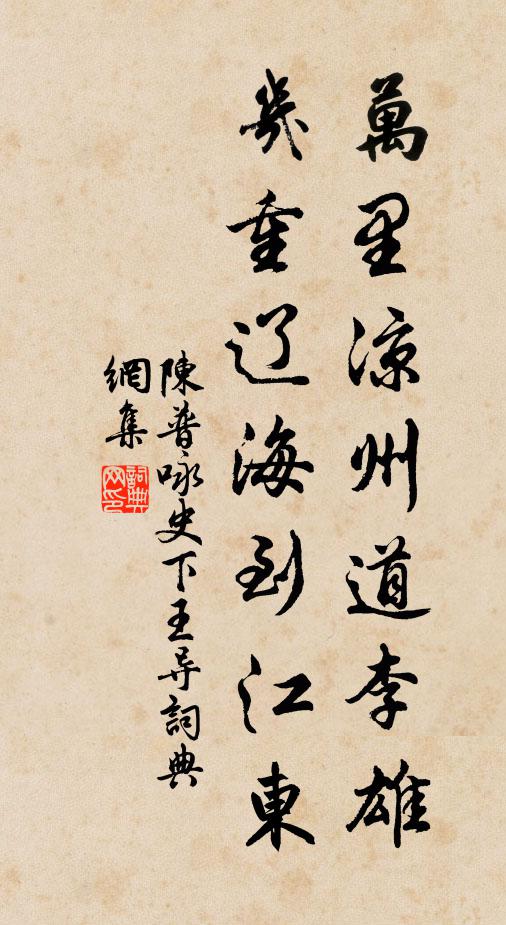 萬里涼州道李雄
幾重辽海到江東
陳普咏史下王导詞典
網集
詞典网印